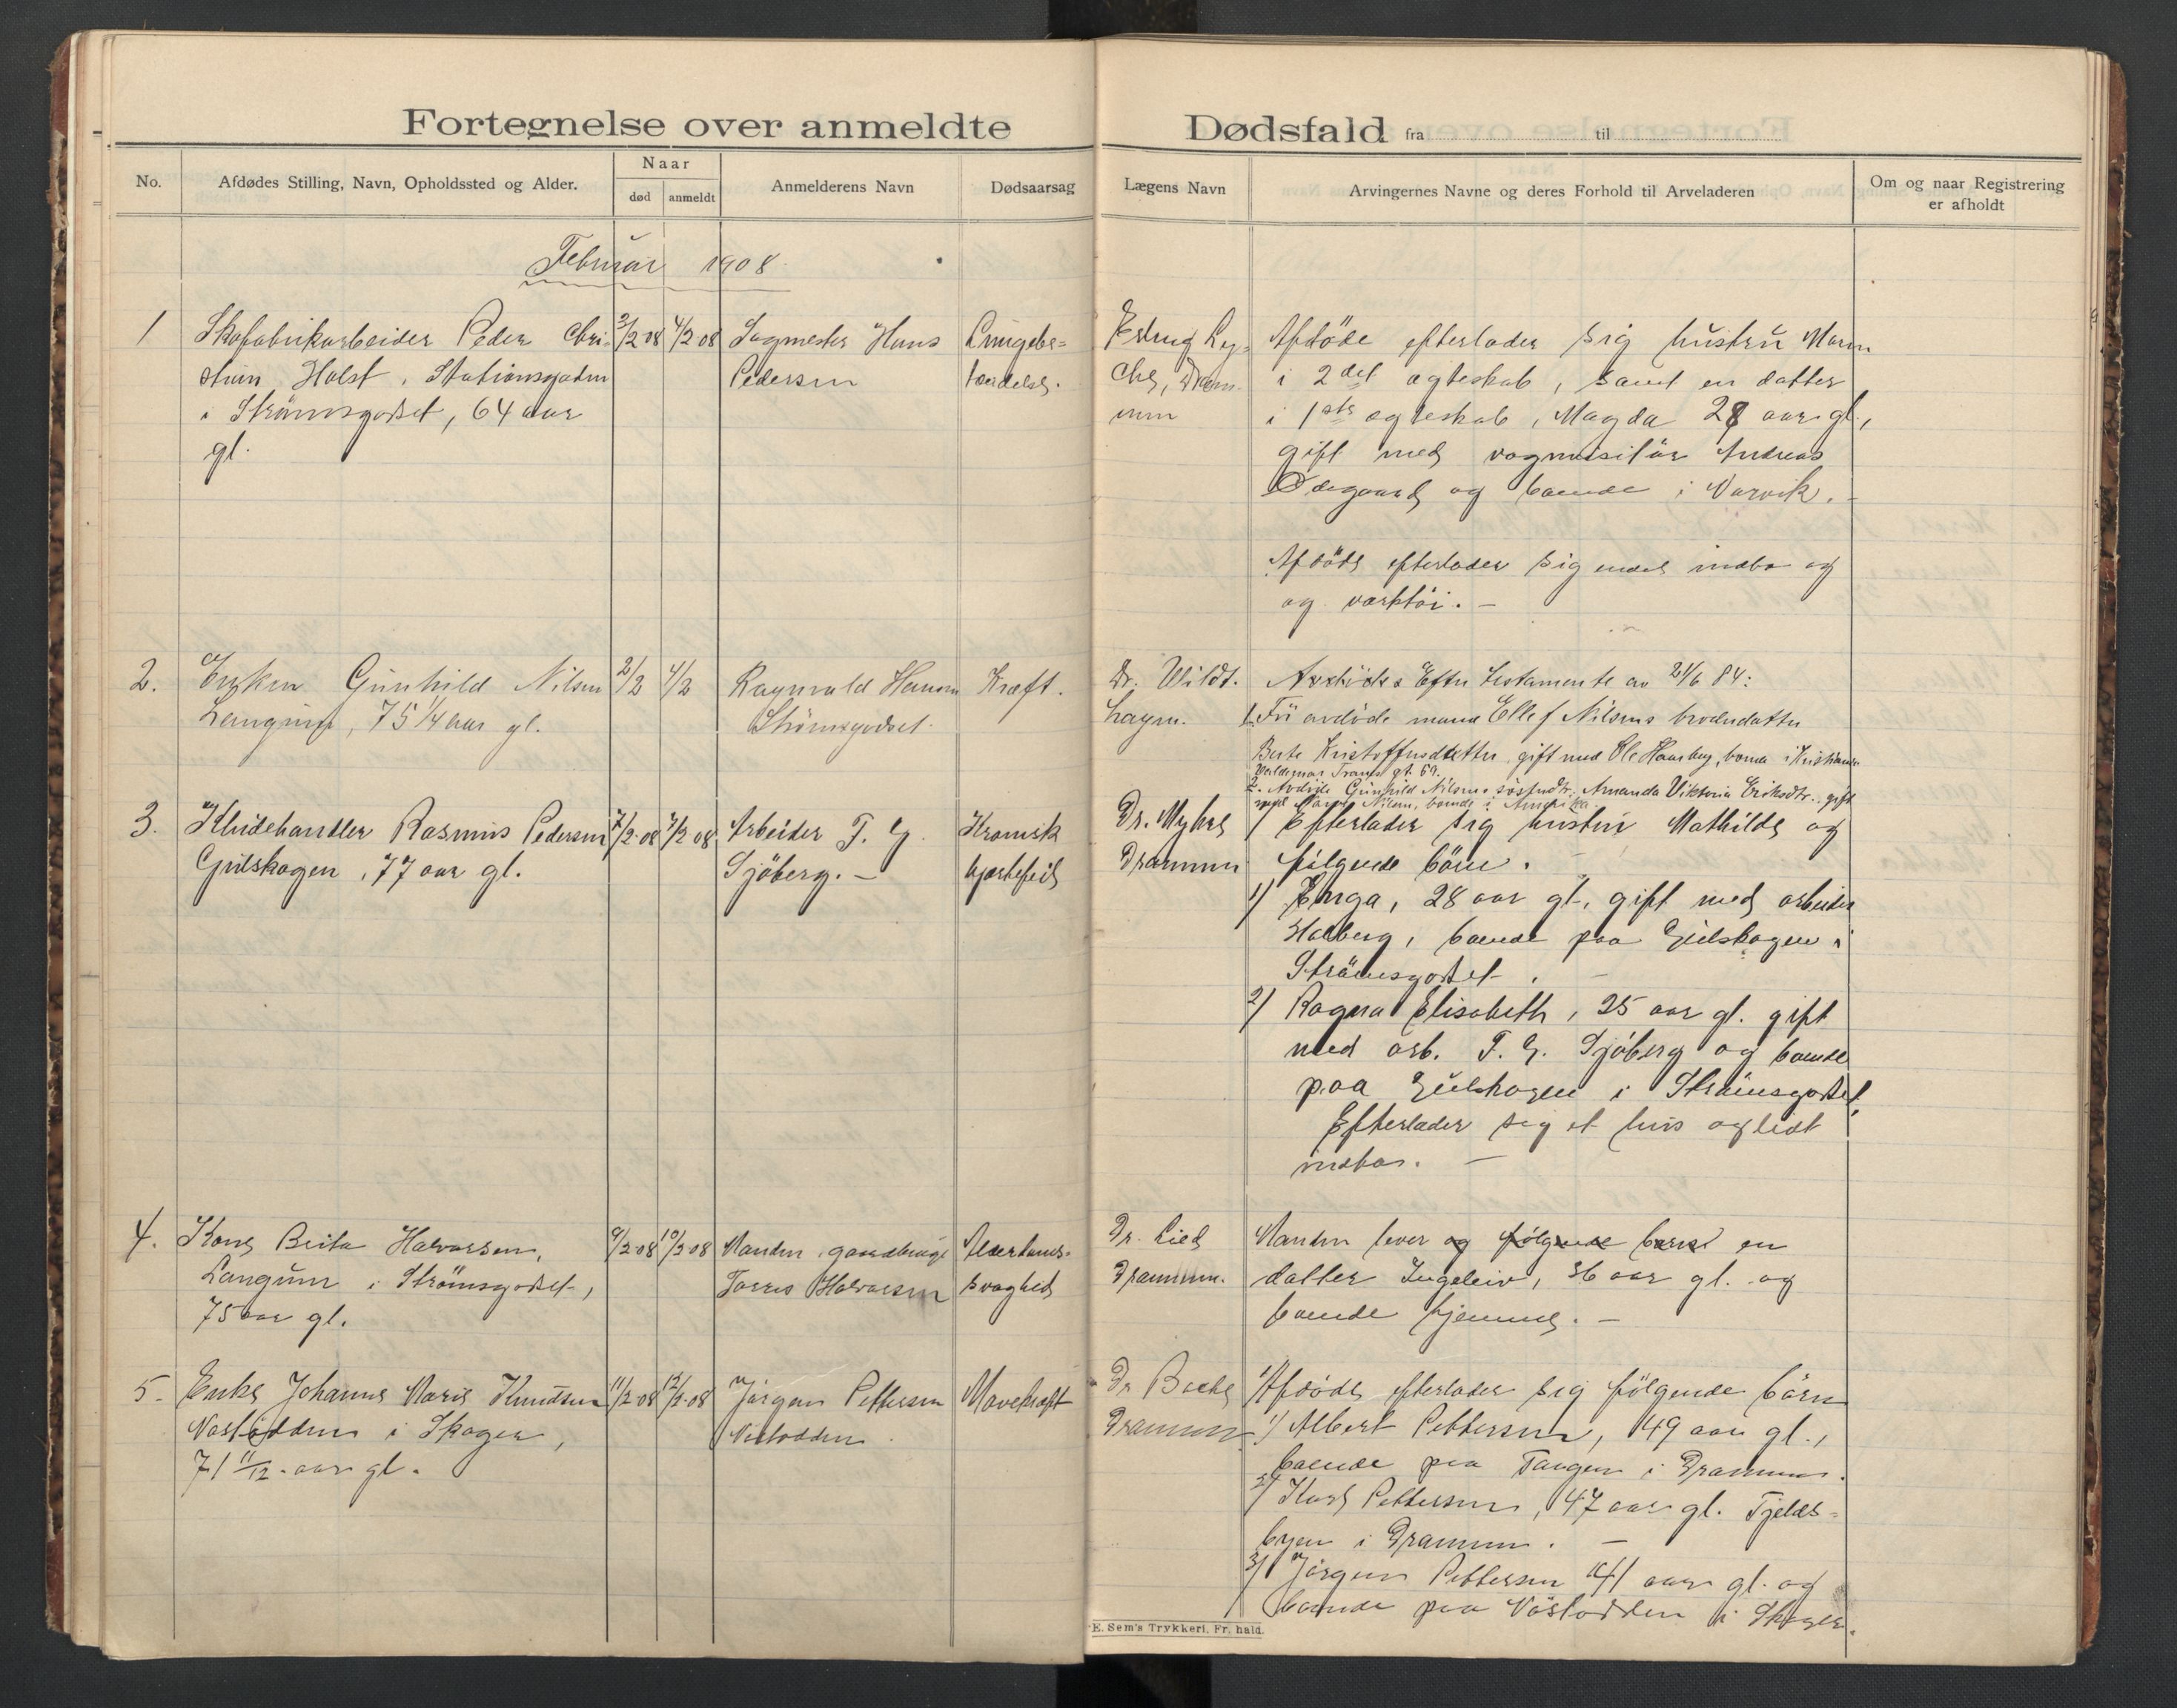 Fortegnelse over anmeldte Dødsfald fra til
No.
Afdødes Stilling, Navn, Opholdssted og Alder.
Naar
død
anmeldt
Anmelderens Navn
Dødsaarsag
Lægens Navn
Arvingernes Navne og deres Forhold til Arveladeren
Om og naar Registrering
er afholdt
Februar 1908
1
Skofabrikarbeider Peder Chri-
stian Holst, Stationsgaden
i Strömsgodset, 64 aar
gl.
3/2 08
4/2 08
Sagmester Hans
Pedersen
Lungebe-
tændelse.
Dram-
men
Afdöde efterlader sig hustru Maren
i 2det ægteskab, samt en datter
i 1ste ægteskab, Magda 28 aar gl.,
gift med vognvisitör Andreas
Ödegaard og boende i Narvik.
Afdöde efterlader sig endel indbo og
og værktöi. -
2.
Enken Gunhild Nilsen
Langum, 75 1/4 aar gl.
2/2
4/2
Ragnvald Hansen
Strömsgodset.
Kræft.
Dr. Wildt.
Avdödes Efter testamente av 21/6 84:
1. Fru avdöde mand Ellef Nilsens broderdatter
Berte Kristoffersdatter gift med Ole Haarberg, boende i Kristiania
Valdemar Tranes gt. 69.
2. Avdöde Gunhild Nilsens sösterdtr. Amanda Viktoria Eriksdtr. gift
med Nilsen, boende i Amerika.
3.
Kludehandler Rasmus Pedersen
Gulskogen, 77 aar gl.
7/2 08
7/2 08
Arbeider F. G.
Sjöberg. -
Kronisk
hjertefeil
Dr. Myhre
Drammen
Efterlader sig hustru Mathilde og
fölgende börn.
1) Inga, 28 aar gl., gift med arbeider
Holberg, boende paa Gulskogen i
Strömsgodset.
2) Ragna Elisabeth, 25 aar gl. gift
med arb. F. G. Sjöberg og boende
paa Gulskogen i Strömsgodset.
Efterlader sig et hus og lidt
indbo. -
4.
Kone Beita Halvorsen,
Langum i Strömsgodset,
75 aar gl.
9/2 08
10/2 08
Manden, gaardbruger
Torres Halvorsen
Alderdoms-
svaghed
Dr. Lied
Drammen.
Manden lever og fölgende barn en
datter Ingeleiv, 36 aar gl. og
boende hjemme. -
5.
Enke Johanne Marie Knudsen
Næstodden i Skoger,
71 11/12 aar gl.
11/2 08
12/2 08
Jörgen Pettersen
Næstodden
Mavekræft
Dr Backe
Drammen
Afdöde efterlader sig fölgende börn
1) Albert Pettersen, 49 aar gl.,
boende paa Tangen i Drammen.
2) Karl Pettersen, 47 aar gl. Fjelds-
byen i Drammen. -
3) Jörgen Pettersen 41 aar gl. og
boende paa Næstodden i Skoger.
E. Sem's Trykkeri, Fr. hald.